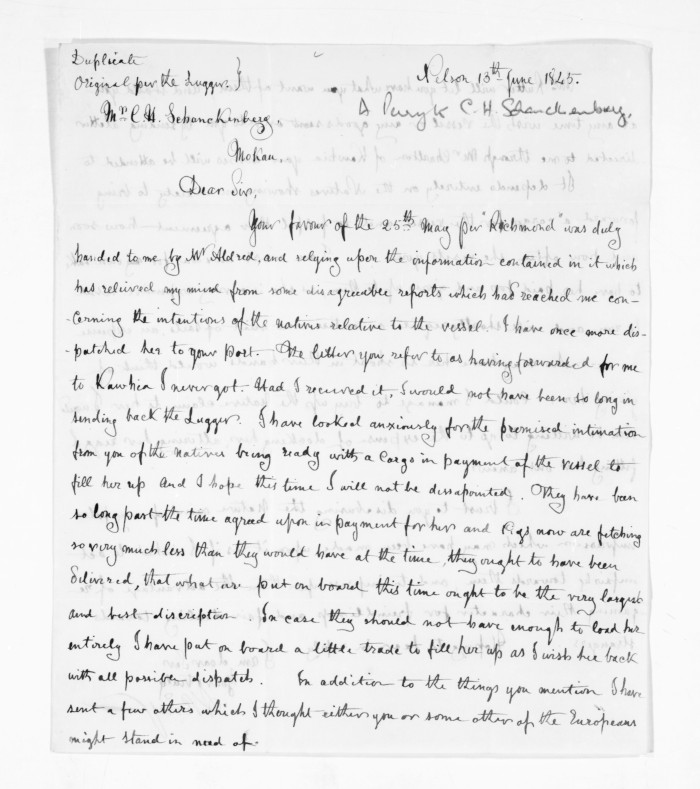 Duplicate
Original per the Lugger }
Nelson 13th June 1845.
Mr. C. H. Schanckenberg,
C. H. Schanckenberg.
Mokau.
Dear Sir,
Your favour of the 25th May per "Richmond was duly
handed to me by Mr Aldred, and relying upon the information contained in it which
has relieved my mind from some disagreebee reports which had reached me con-
-cerning the intentions of the natives relative to the vessel. I have once more dis-
-patched her to your port. The letter you refer to as having forwarded for me
to Kawhia I never got. Had I received it, I would not have been so long in
sending back the Lugger. I have looked anxiously for the promised intimation
from you of the natives being ready with a Cargo in payment of the vessel to
fill her up and I hope this time I will not be dissapointed. They have been
so long past the time agreed upon in payment for her and Pigs now are fetching
so very much less than they would have at the time, they ought to have been
delivered, that what are put on board this time ought to be the very largest
and best discription. In case they should not have enough to load her
entirely I have put on board a little trade to fill her up as I wish her back
with all possible dispatch. In addition to the things you mention I have
sent a few others which I thought either you or some other of the Europeans
might stand in need of.